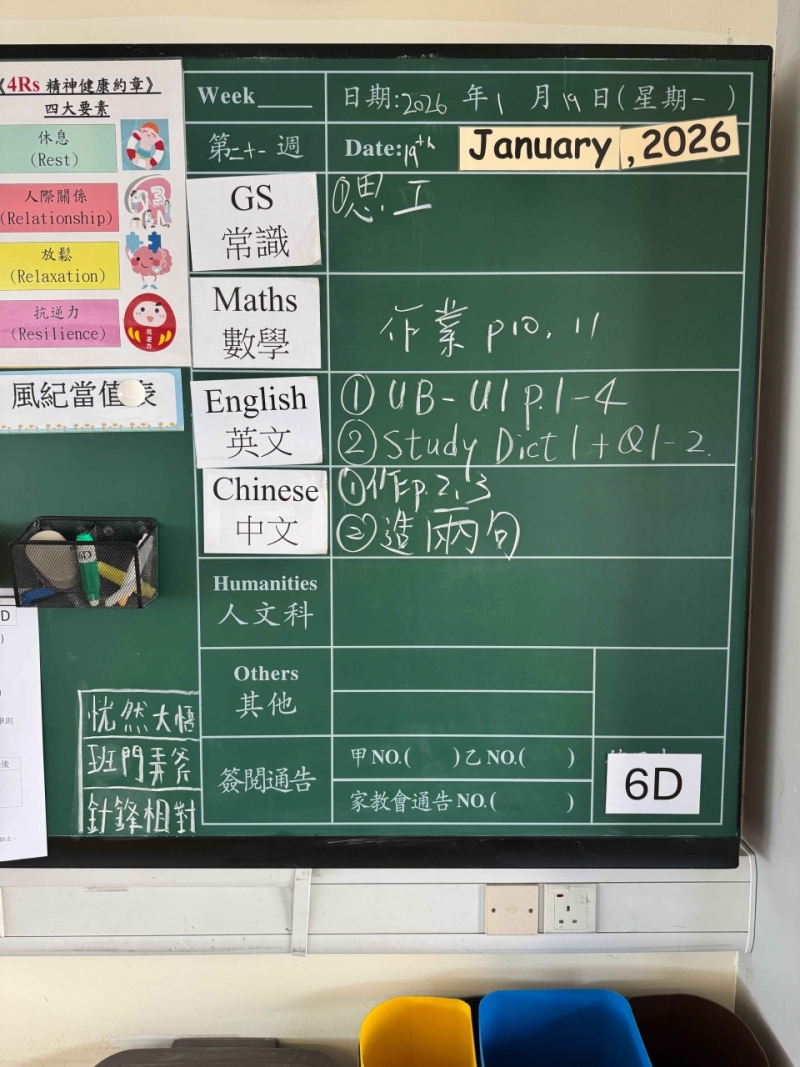 《4Rs 精神健康約章》
四大要素
休息
(Rest)
人際關係
(Relationship)
放鬆
(Relaxation)
抗逆力
(Resilience)
風紀當值表
Week
日期:2026 年 1 月 19 日(星期一)
第二十一週
Date:19th January, 2026
GS
常識
①思工
Maths
數學
作業 p10, 11
English
英文
① UB-U1 p.1-4
② Study Dict 1+Q1-2.
Chinese
中文
①作p.2,3
②造兩句
Humanities
人文科
Others
其他
簽閱通告
甲NO.( )乙NO.( )
家教會通告NO.( )
6D
恍然大悟
班門弄斧
針鋒相對